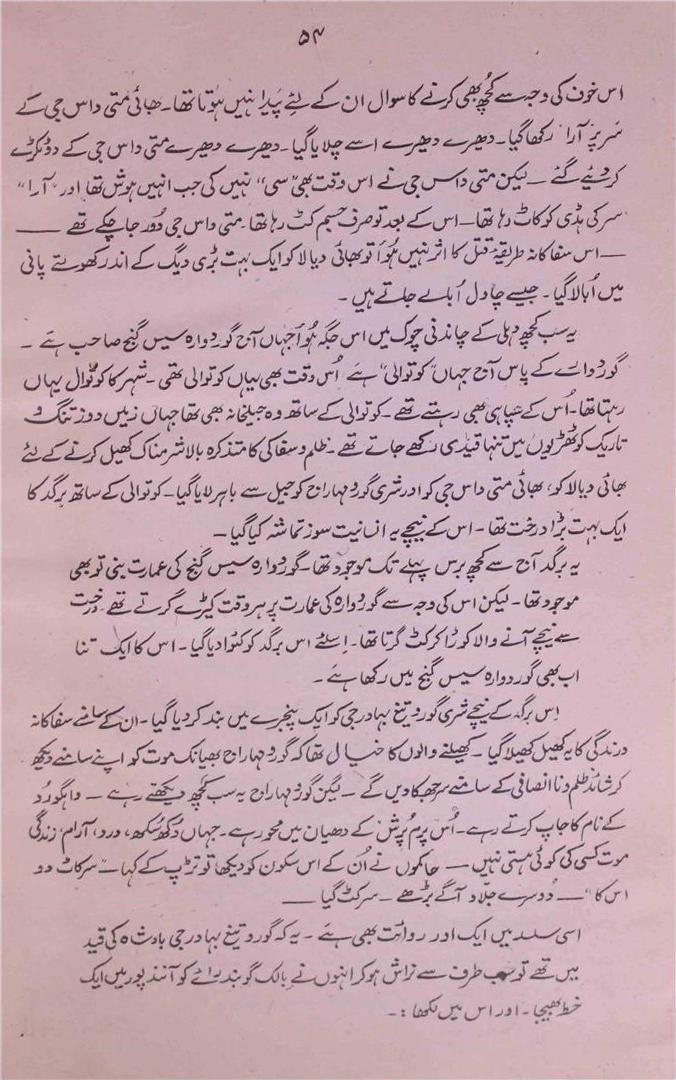 ۵۴
اس خوف کی وجہ سے کچھ بھی کرنے کا سوال ان کے لئے پیدا نہیں ہوتا تھا۔ بھائی متی داس جی کے
سر پر آرا رکھا گیا۔ دھیرے دھیرے اسے چلایا گیا۔ دھیرے دھیرے متی داس جی کے دو ٹکڑے
کر دیئے گئے — لیکن متی داس جی نے اس وقت بھی "سی" نہیں کی جب انہیں ہوش تھا اور "آرا"
سر کی ہڈی کو کاٹ رہا تھا — اس کے بعد تو صرف جسم کٹ رہا تھا۔ متی داس جی دُور جا چکے تھے —
— اس سفاکانہ طریقۂ قتل کا اثر نہیں ہُوا تو بھائی دیالا کو ایک بہت بڑی دیگ کے اندر کھولتے پانی
میں اُبالا گیا۔ جیسے چاول اُبالے جاتے ہیں۔
یہ سب کچھ دہلی کے چاندنی چوک میں اس جگہ ہُوا جہاں آج گوردوارہ سیس گنج صاحب ہے —
گوردوارے کے پاس آج جہاں "کوتوالی" ہے اُس وقت بھی یہاں کوتوالی تھی۔ شہر کا کوتوال یہاں
رہتا تھا۔ اُس کے سپاہی بھی رہتے تھے۔ کوتوالی کے ساتھ وہ جیلخانہ بھی تھا جہاں زمیں دوز تنگ و
تاریک کوٹھڑیوں میں تنہا قیدی رکھے جاتے تھے۔ ظلم و سفاکی کا متذکرہ بالا شرمناک کھیل کرنے کے لئے
بھائی دیالا کو، بھائی متی داس جی کو اور شری گورو مہاراج کو جیل سے باہر لایا گیا۔ کوتوالی کے ساتھ برگد کا
ایک بہت بڑا درخت تھا۔ اس کے نیچے یہ انسانیت سوز تماشہ کیا گیا —
یہ برگد آج سے کچھ برس پہلے تک موجود تھا۔ گوردوارہ سیس گنج کی عمارت بنی تو بھی
موجود تھا۔ لیکن اس کی وجہ سے گوردوارہ کی عمارت پر ہر وقت کیڑے گرتے تھے۔ درخت
سے نیچے آنے والا کوڑا کرکٹ گرتا تھا۔ اسلئے اس برگد کو کٹوا دیا گیا۔ اس کا ایک تنا
اب بھی گوردوارہ سیس گنج میں رکھا ہے۔
اِس برگد کے نیچے شری گورو تیغ بہادر جی کو ایک پنجرے میں بند کر دیا گیا۔ ان کے سامنے سفاکانہ
درندگی کا یہ کھیل کھیلا گیا۔ کھیلنے والوں کا خیال تھا کہ گورو مہاراج بھیانک موت کو اپنے سامنے دیکھ
کر شائد ظلم و ناانصافی کے سامنے سر جھکا دیں گے — لیکن گورو مہاراج یہ سب کچھ دیکھتے رہے — واہگورو
کے نام کا جاپ کرتے رہے۔ اُس پرم پُرش کے دھیان میں محو رہے۔ جہاں دُکھ سُکھ، درد، آرام، زندگی
موت کسی کی کوئی ہستی نہیں — حاکموں نے اُن کے اس سکون کو دیکھا، تو تڑپ کے کہا — سر کاٹ دو
اس کا" — دُوسرے جلّاد آگے بڑھے — سر کٹ گیا —
اسی سلسلہ میں ایک اور روائت بھی ہے — یہ کہ گورو تیغ بہادر جی بادشاہ کی قید
میں تھے تو سب طرف سے نراش ہو کر انہوں نے بالک گوبند رائے کو آنند پور میں ایک
خط بھیجا۔ اور اس میں لکھا:۔